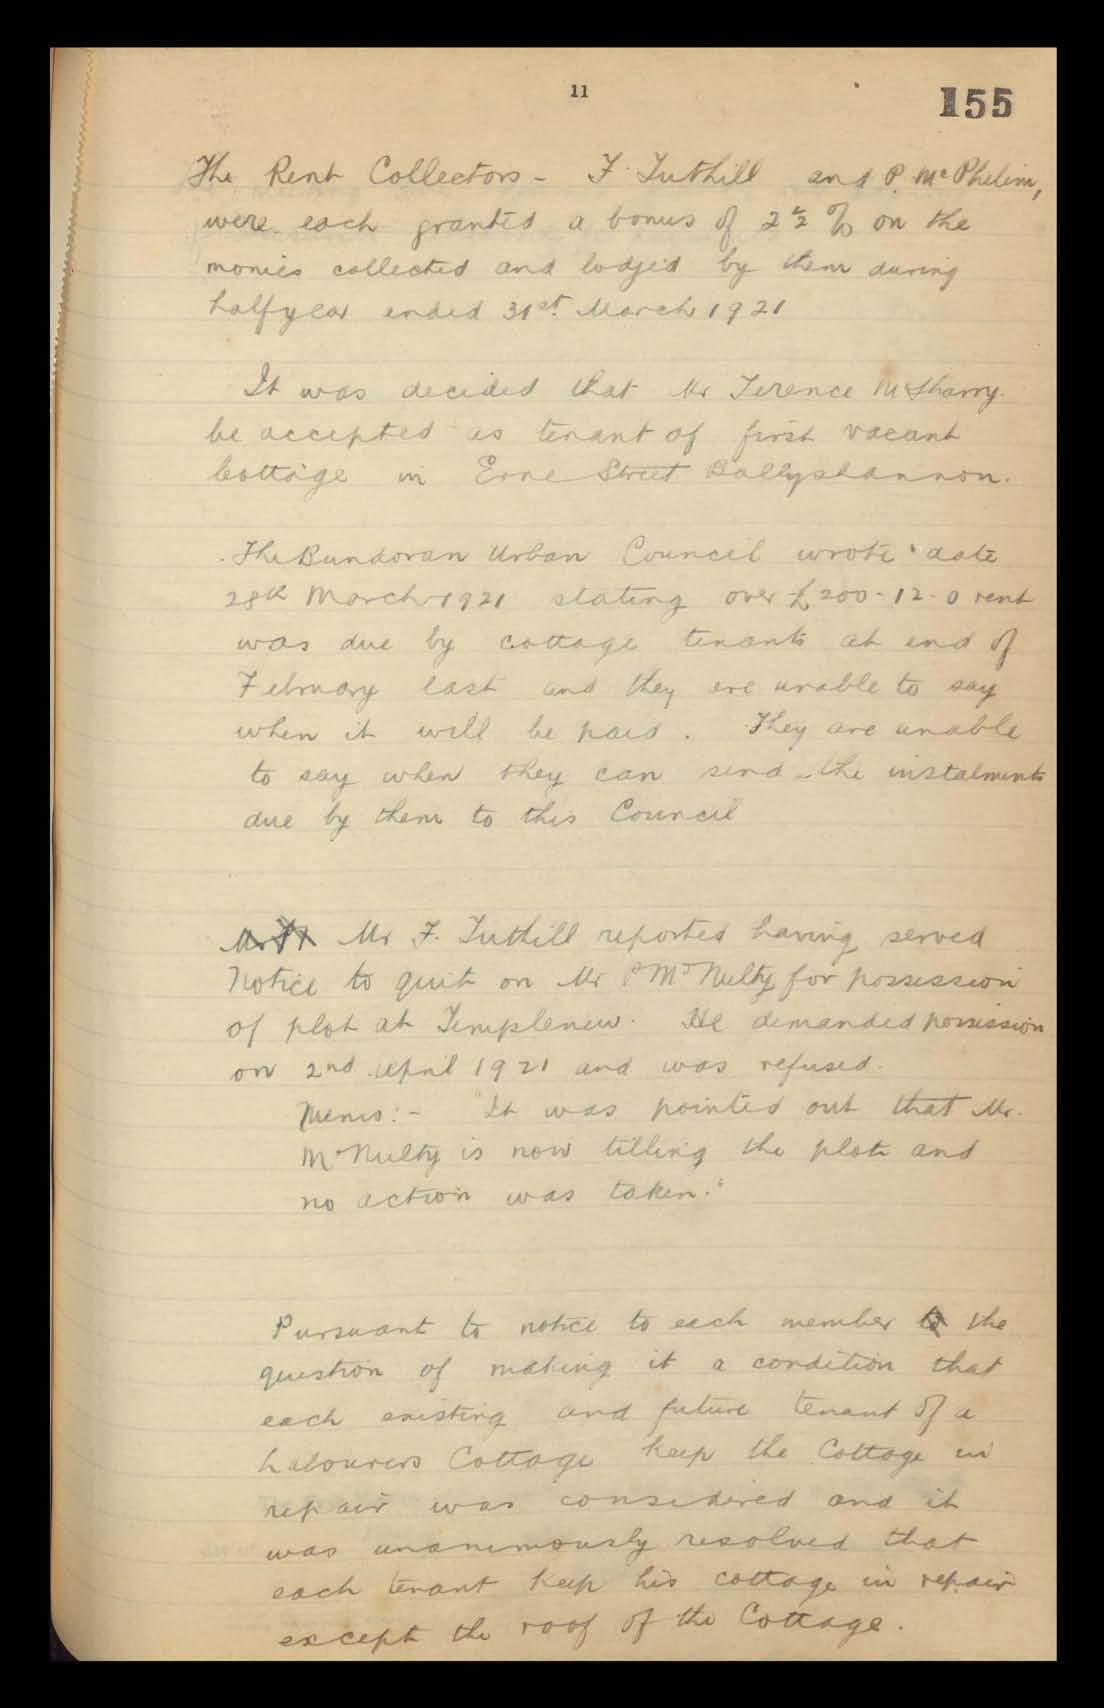 11
155
The Rent Collectors - F. Tuthill and P. McPhelim,
were each granted a bonus of 2½ % on the
monies collected and lodged by them during
halfyear ended 31st March 1921
It was decided that Mr Terence McSharry
be accepted as tenant of first vacant
Cottage in Erne Street Ballyshannon.
The Bundoran Urban Council wrote date
28th March 1921 stating over £200-12-0 rent
was due by cottage tenants at end of
February last and they are unable to say
when it will be paid. They are unable
to say when they can send the instalments
due by them to this Council
Mr F. Tuthill reported having served
Notice to quit on Mr P McNulty for possession
of plot at Templenew. He demanded possession
on 2nd April 1921 and was refused.
Memo:- "It was pointed out that Mr.
McNulty is now tilling the plot and
no action was taken."
Pursuant to notice to each member the
question of making it a condition that
each existing and future tenant of a
Labourers Cottage keep the Cottage in
repair was considered and it
was unanimously resolved that
each tenant keep his cottage in repair
except the roof of the Cottage.